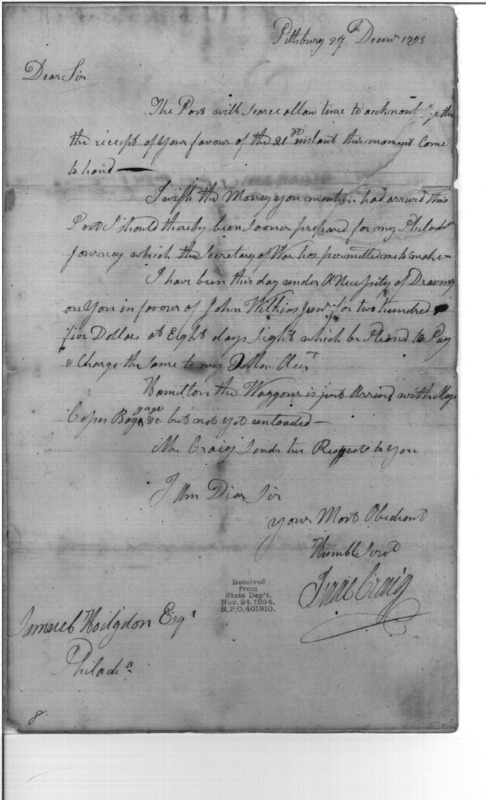 Pittsburg 27th Decemr 1793
Dear Sir
The Post will scarce allow time to acknowledge the
the receipt of your favour of the 21st instant this moment Come
to hand —
I wish the Money you mention had arrived this
Post I should thereby been Sooner prepared for my Philada
Journey which the Secretary of War has permitted me to make —
I have been this day under a Necessity of Drawing
on You in favour of John Wilkins Junr for two Hundred
five Dollars at Eight days Sight which be Pleased to Pay
& Charge the Same to my Acct
Hamilton the Waggoner is just Arrived with Majr
Cass Baggage &c but not yet unloaded —
Mrs Craig Sends her Respects to you
I Am Dear Sir
your Most Obedient
Humble Servt
Isaac Craig
Received
from
State Dep't.
Nov. 24. 1894.
R.P.O. 401910.
Samuel Hodgdon Esqr
Philada
8